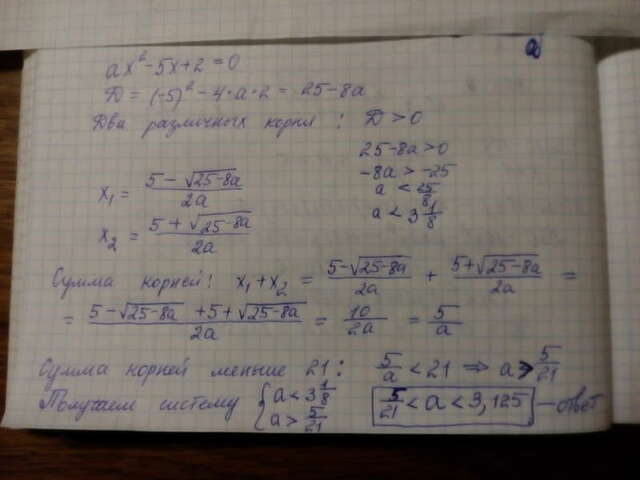 ax² - 5x + 2 = 0
D = (-5)² - 4·a·2 = 25 - 8a
Два различных корня : D > 0
25 - 8a > 0
-8a > -25
a < 25/8
a < 3 1/8
x₁ = (5 - √(25-8a))/(2a)
x₂ = (5 + √(25-8a))/(2a)
Сумма корней: x₁ + x₂ = (5 - √(25-8a))/(2a) + (5 + √(25-8a))/(2a) =
= (5 - √(25-8a) + 5 + √(25-8a))/(2a) = 10/(2a) = 5/a
Сумма корней меньше 21: 5/a < 21 ⇒ a > 5/21
Получаем систему { a < 3 1/8
a > 5/21
5/21 < a < 3,125 — ответ